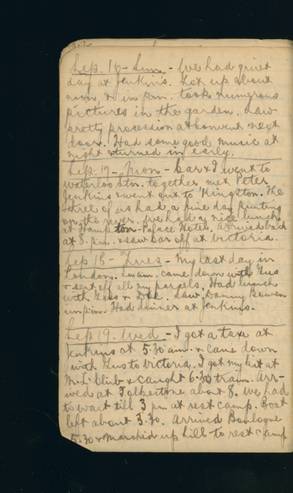 Sep. 16 - Sun. - We had quiet
day at Jenkins. Got up about
noon, & in p.m. took numerous
pictures in the garden. Saw
pretty procession at convent next
door. Had some good music at
night & turned in early.
Sep. 17 - Mon. - Car & I went to
Waterloo Stn. together met Peter
Jenkins & went out to Kingston. The
three of us had a fine day punting
on the river. We had a nice lunch
at Hampton - Palace Hotel. Arrived back
at 8 p.m. & saw Car off at Victoria.
Sep 18 - Tues - My last day in
London. came down with Gus
& sent off all my parcels. Had lunch
with Gus. Saw Danny
in p.m. Had dinner at Jenkins.
Sep 19. Wed - I got a taxi at
Jenkins at 5.30 a.m. & came down
with Gus to Victoria. I got my kit at
Club & caught 6.30 train. Arr-
ived at Folkestone about 8. We had
to wait till 3 pm at rest camp. Boat
left about 3.30. Arrived Boulogne
5.30 & marched up hill to rest camp